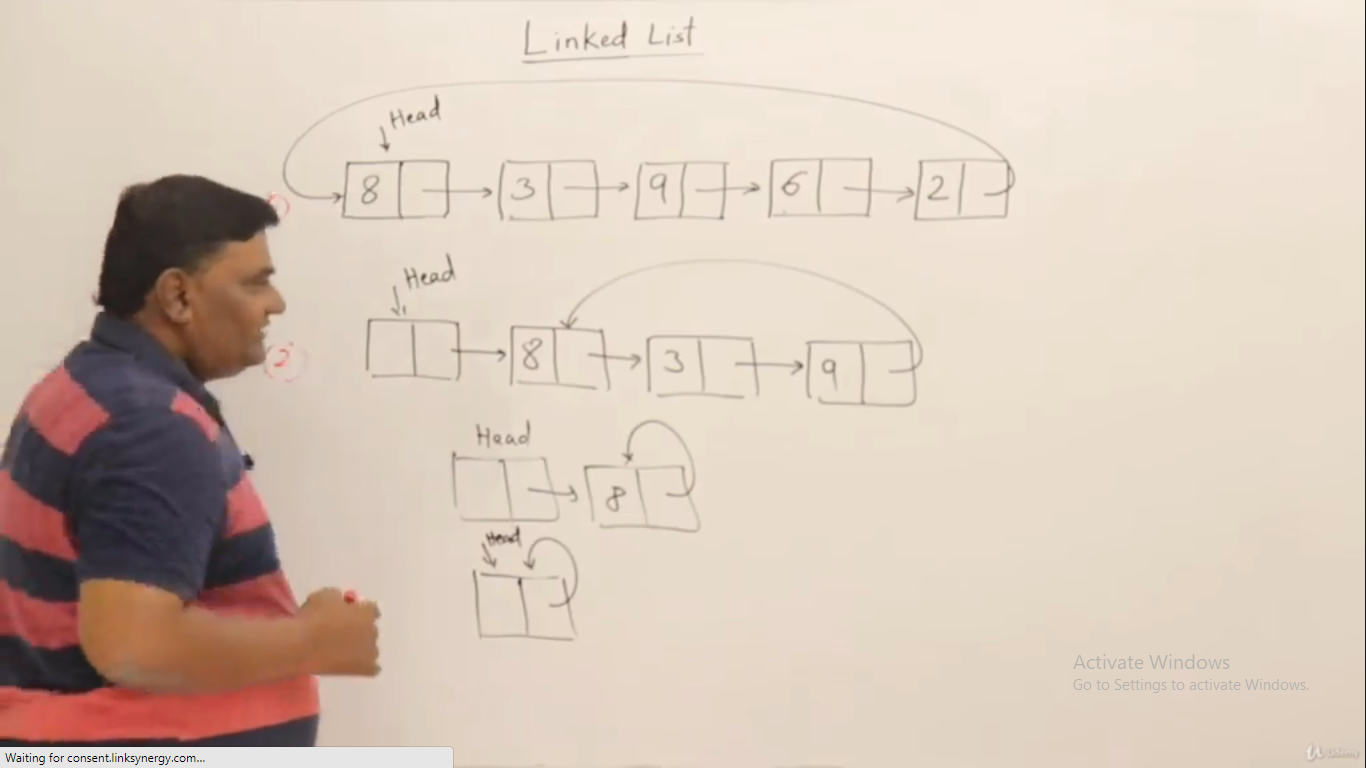 Linked List
Head
8 3 9 6 2
1
Head
8 3 9
2
Head
8
Head
Activate Windows
Go to Settings to activate Windows.
Udemy
Waiting for consent.linksynergy.com...